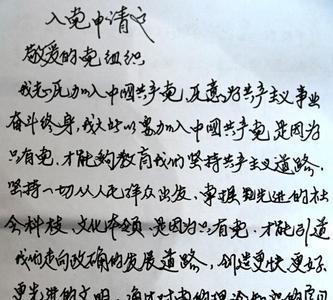 入党申请书
敬爱的党组织
我志愿加入中國共产党,愿意为共产主义事业
奋斗终身,我之所以要加入中國共产党,是因为
只有党,才能够教育我们坚持共产主义道路,
坚持一切从人民群众出发,掌握先进的社
会科技、文化本领,是因为只有党,才能引道
我们走向政确的发展道路,创造更快更好
更先进的文明,通过对党的理论知识的